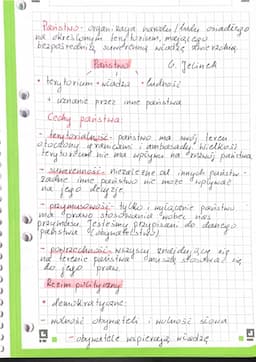 Państwo - organizacja narodu/ludu osiadłego
na określonym terytorium, mającego
bezpośrednią, suwerenną władzę zwierzchnią.
Państwo G. Jelinek
• terytorium • władza • ludność
+ uznane przez inne państwa
Cechy państwa:
- terytorialność - państwo ma swój teren
otoczony granicami i ambasady. Wielkość
terytorium nie ma wpływu na rozwój państwa
- suwerenność - niezależne od innych państw -
żadne inne państwo nie może wpływać
na jego decyzje.
- przymusowość - tylko i wyłącznie państwo
ma prawo stosowania wobec nas
przymusu. Jesteśmy przypisani do danego
państwa (obywatelstwo)
- powszechność - wszyscy znajdujący się
na terenie państwa muszą stosować się
do jego praw.
Reżim polityczny
• demokratyczne:
- wolność obywateli - wolność słowa
- obywatele wspierają władzę